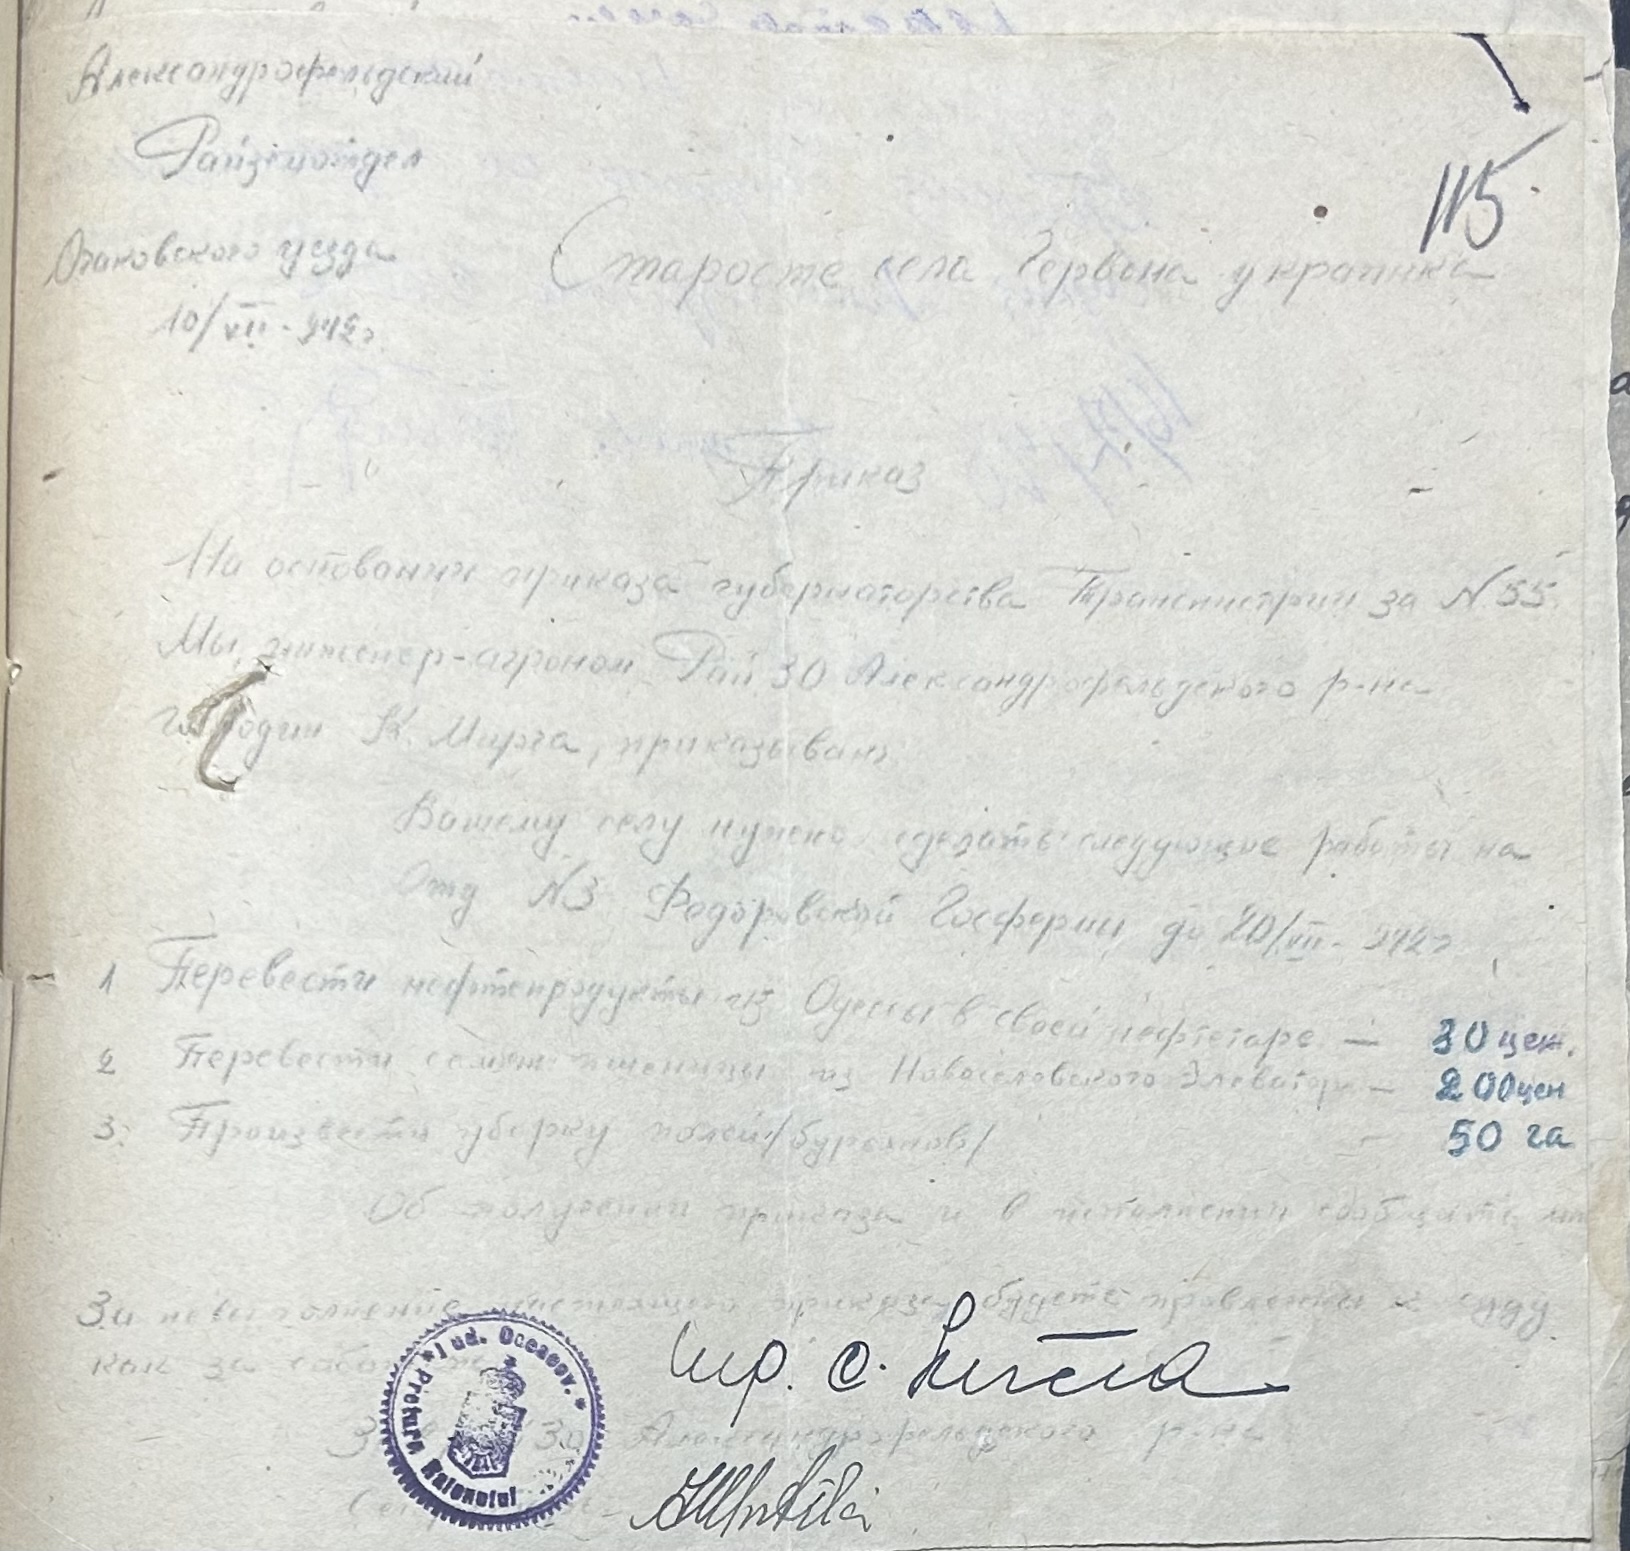 Александрофельдский
Райземотдел
Очаковского уезда
10/VII - 942 г
115
Старосте села Червона украинка
Приказ
На основании приказа губернаторства Транснистрии за N. 55.
Мы, инженер-агроном Рай ЗО Александрофельдского р-на
К. Мирча, приказываю
Вашему селу нужно сделать следующие работы на
Отд N3 Федоровской Госфермы до 20/VII - 942 г
1 Перевести нефтепродукты из Одессы в своей нефтетаре — 30 цен.
2 Перевести семян пшеницы из Новоселовского Элеватора — 200 цен
3. Произвести уборку полей /бурьянов/ - 50 га
Об получении приказа и в исполнении сообщить
За невыполнение настоящего приказа будете привлечены к суду
как за
Jud. Oceacov. * Pretura Raionului *
Инр. с.
Александрофельдского р-на